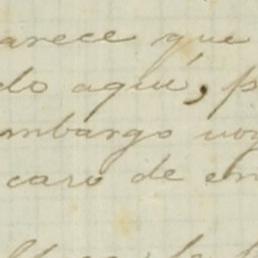 arece que
do aqui, p
mbargo voy
caro de en